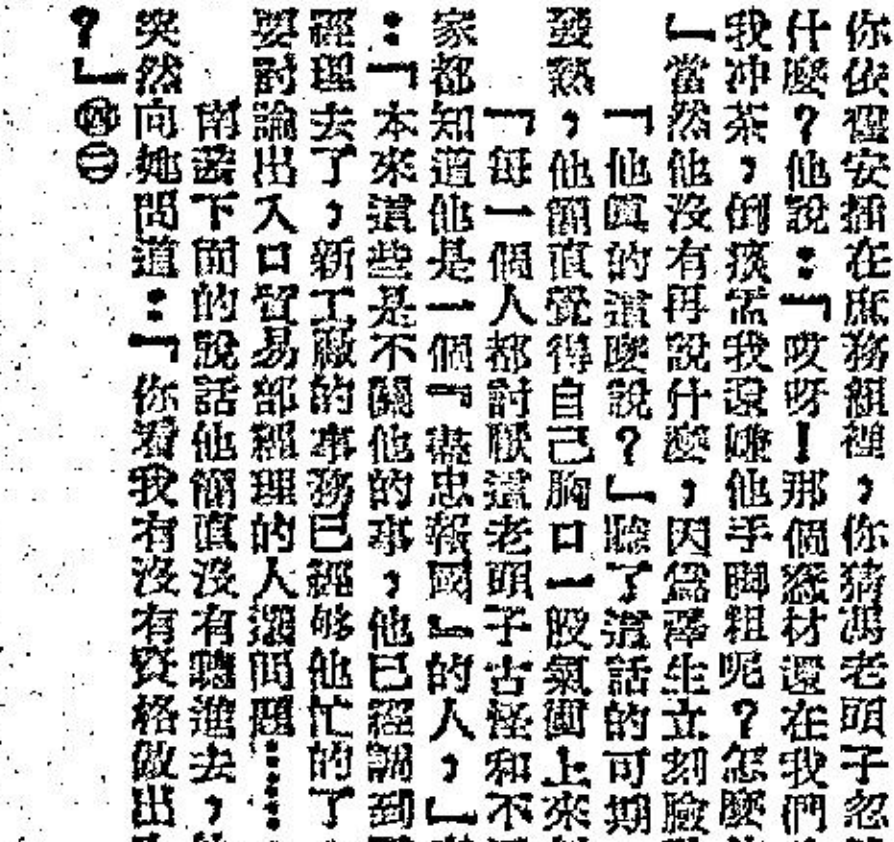 你依禮安插在庶務組裡，你猜馮老頭子忽
什麼？他說：「哎呀！那個蠢材還在我們
我冲茶，倒痰盂我還嫌他手脚粗呢？怎麼
」當然他沒有再說什麼，因為澤生立刻臉
「他真的這麼說？」聽了這話的可期
發熱，他簡直覺得自己胸口一股氣衝上來
「每一個人都討厭這老頭子古怪和不
家都知道他是一個『盡忠報國』的人，」
：「本來這些是不關他的事，他已經調到
經理去了，新工廠的事務已經够他忙的了
要討論出入口貿易部經理的人選問題……
接下面的說話他簡直沒有聽進去，
突然向她問道：「你看我有沒有資格做出
？」㊁